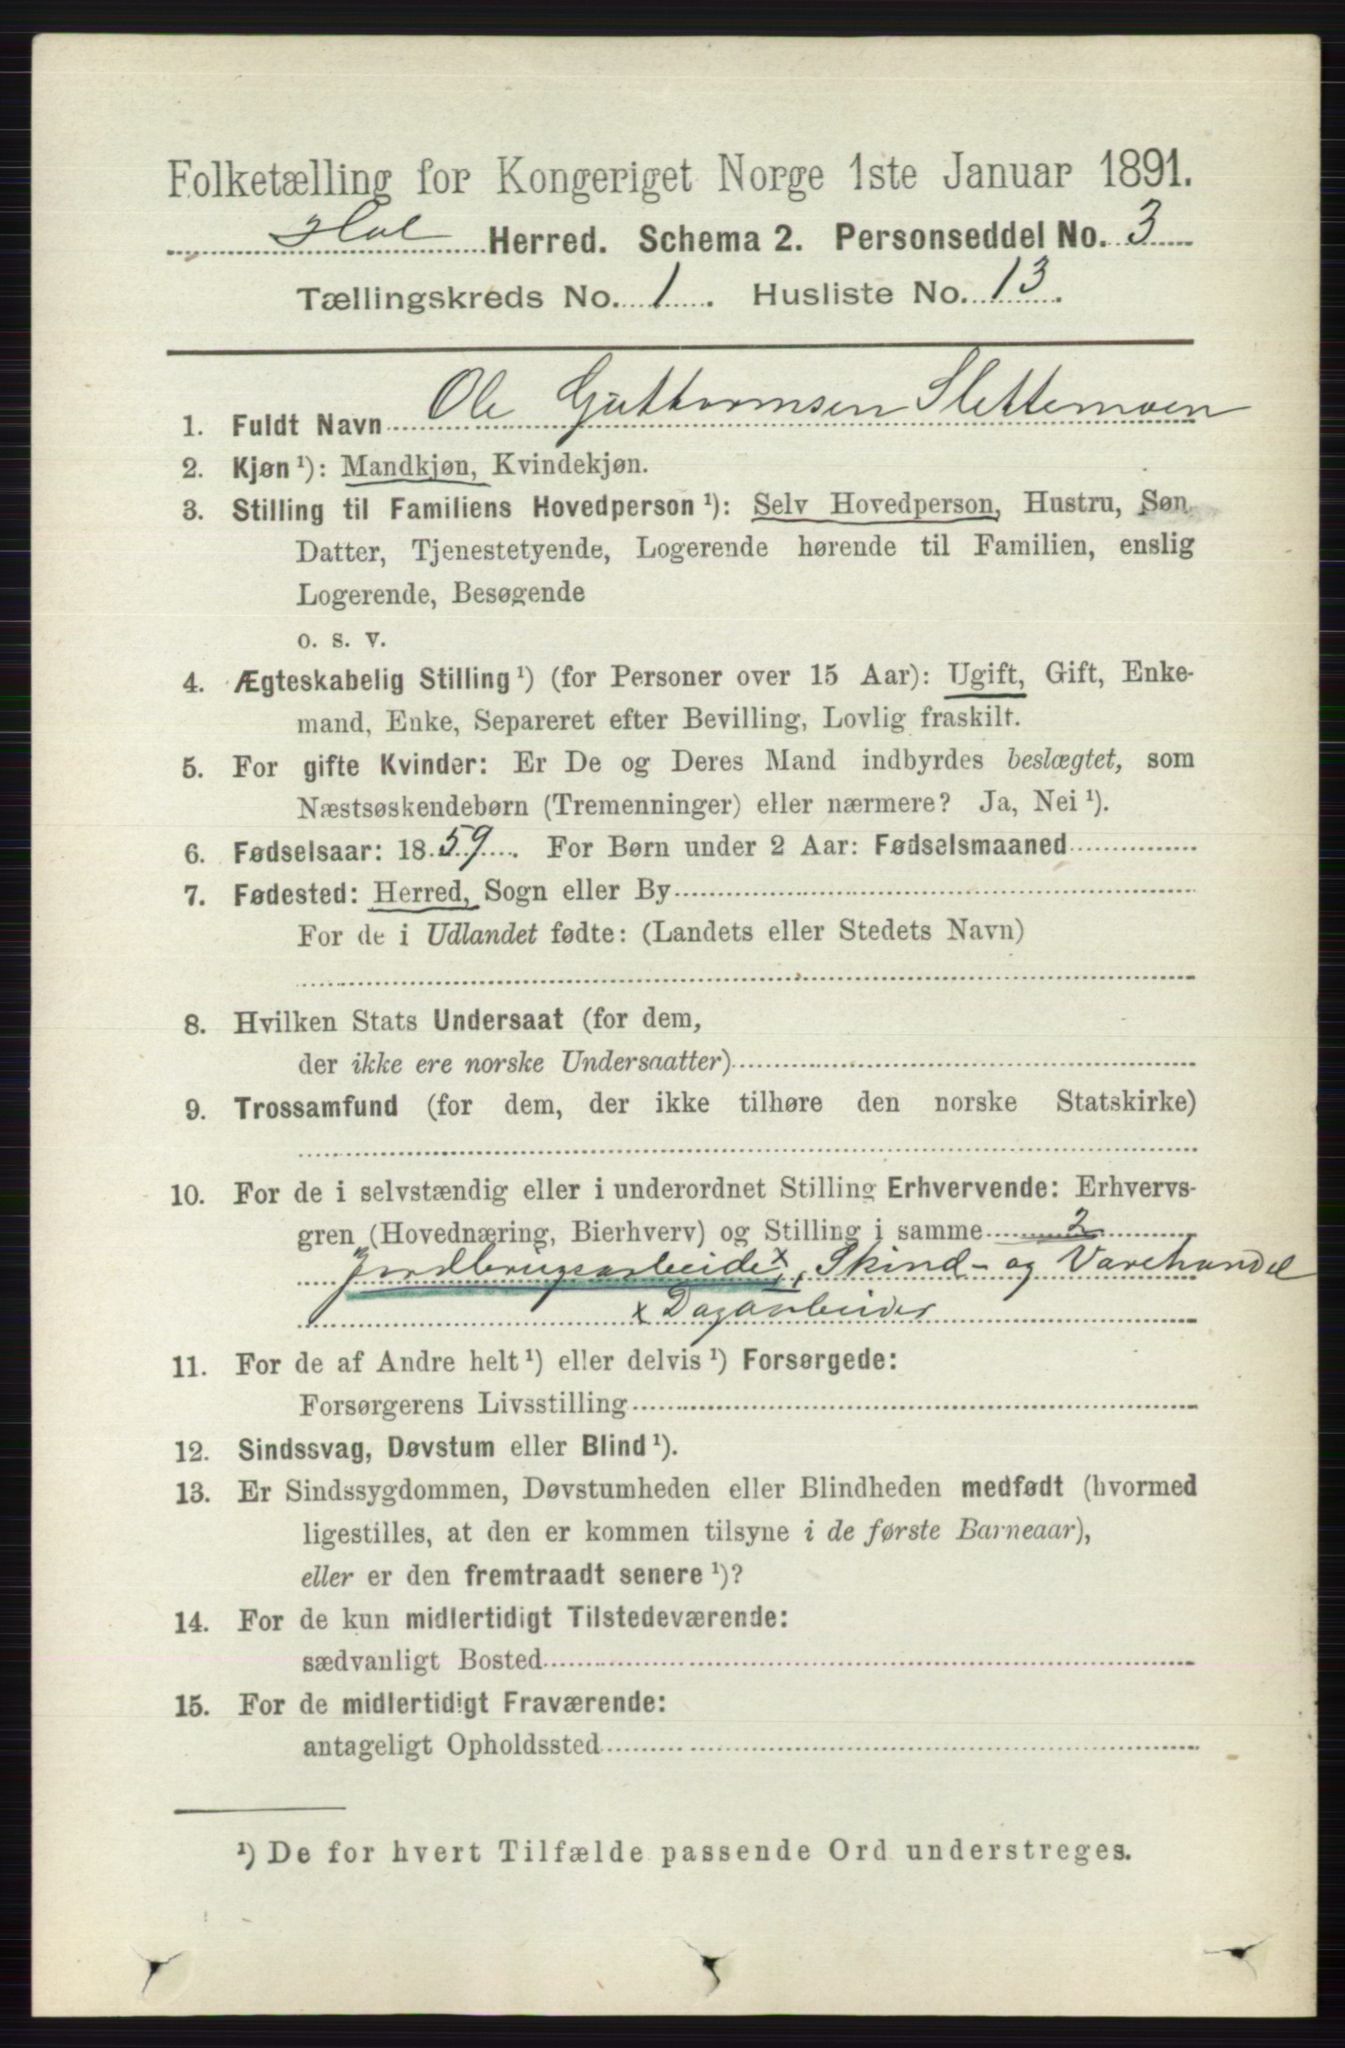 Folketælling for Kongeriget Norge 1ste Januar 1891.
Hol Herred. Schema 2. Personseddel No. 3
Tællingskreds No. 1. Husliste No. 13.
1. Fuldt Navn Ole Guttormsen Slettemoen
2. Kjøn ¹): Mandkjøn, Kvindekjøn.
3. Stilling til Familiens Hovedperson ¹): Selv Hovedperson, Hustru, Søn,
Datter, Tjenestetyende, Logerende hørende til Familien, enslig
Logerende, Besøgende
o. s. v.
4. Ægteskabelig Stilling ¹) (for Personer over 15 Aar): Ugift, Gift, Enke-
mand, Enke, Separeret efter Bevilling, Lovlig fraskilt.
5. For gifte Kvinder: Er De og Deres Mand indbyrdes beslægtet, som
Næstsøskendebørn (Tremenninger) eller nærmere? Ja, Nei ¹).
6. Fødselsaar: 1859. For Børn under 2 Aar: Fødselsmaaned
7. Fødested: Herred, Sogn eller By
For de i Udlandet fødte: (Landets eller Stedets Navn)
8. Hvilken Stats Undersaat (for dem,
der ikke ere norske Undersaatter)
9. Trossamfund (for dem, der ikke tilhøre den norske Statskirke)
10. For de i selvstændig eller i underordnet Stilling Erhvervende: Erhvervs-
gren (Hovednæring, Bierhverv) og Stilling i samme 2
Jordbrugsarbeide x, Skind- og Varehandel
x Dagarbeider
11. For de af Andre helt ¹) eller delvis ¹) Forsørgede:
Forsørgerens Livsstilling
12. Sindssvag, Døvstum eller Blind ¹).
13. Er Sindssygdommen, Døvstumheden eller Blindheden medfødt (hvormed
ligestilles, at den er kommen tilsyne i de første Barneaar),
eller er den fremtraadt senere ¹)?
14. For de kun midlertidigt Tilstedeværende:
sædvanligt Bosted
15. For de midlertidigt Fraværende:
antageligt Opholdssted
¹) De for hvert Tilfælde passende Ord understreges.